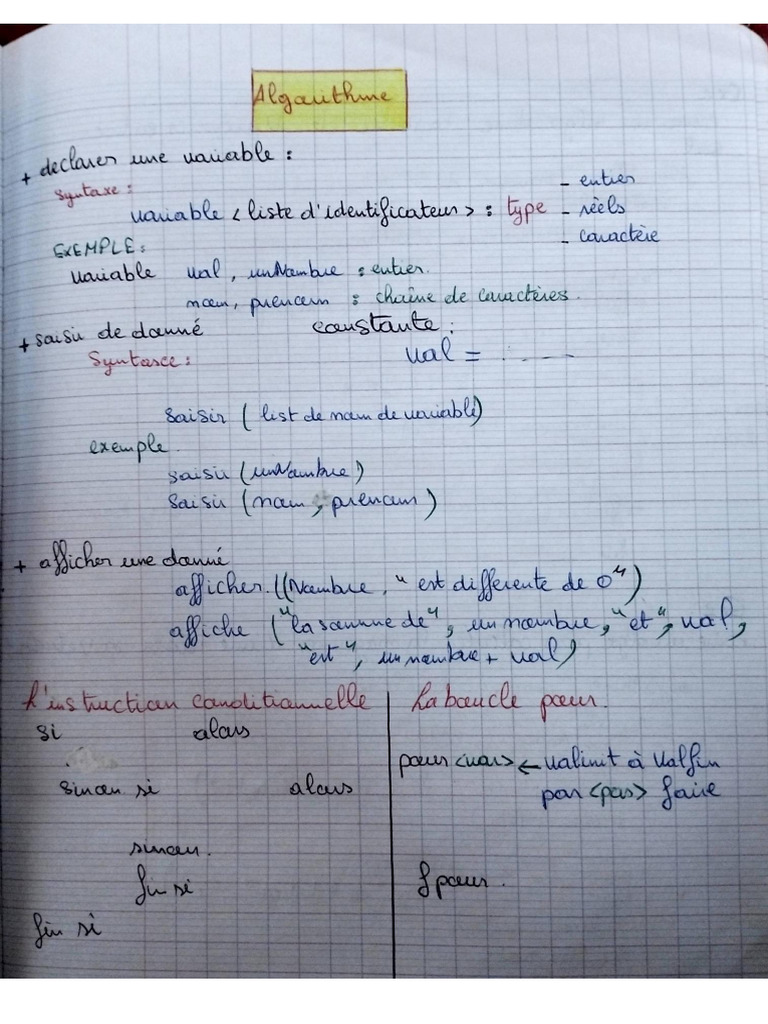 Algorithme
+ declarer une variable :
syntaxe :
variable <liste d'identificateur> : type
- entier
- réels
- caractère
EXEMPLE :
variable val, unNombre : entier.
nom, prenom : chaîne de caractères.
+ saisir de donné
constante :
Syntaxe :
val =
saisir (list de nom de variable)
exemple
saisir (unNombre)
saisir (nom, prenom)
+ afficher une donné
afficher ((Nombre, "est differente de 0")
affiche ("la somme de", un nombre, "et", val,
"est", un nombre + val)
L'instruction conditionnelle
si alors
sinon si alors
sinon.
fin si
fin si
La boucle pour.
pour <var> ← valinit à valfin
par <pas> faire
f pour.